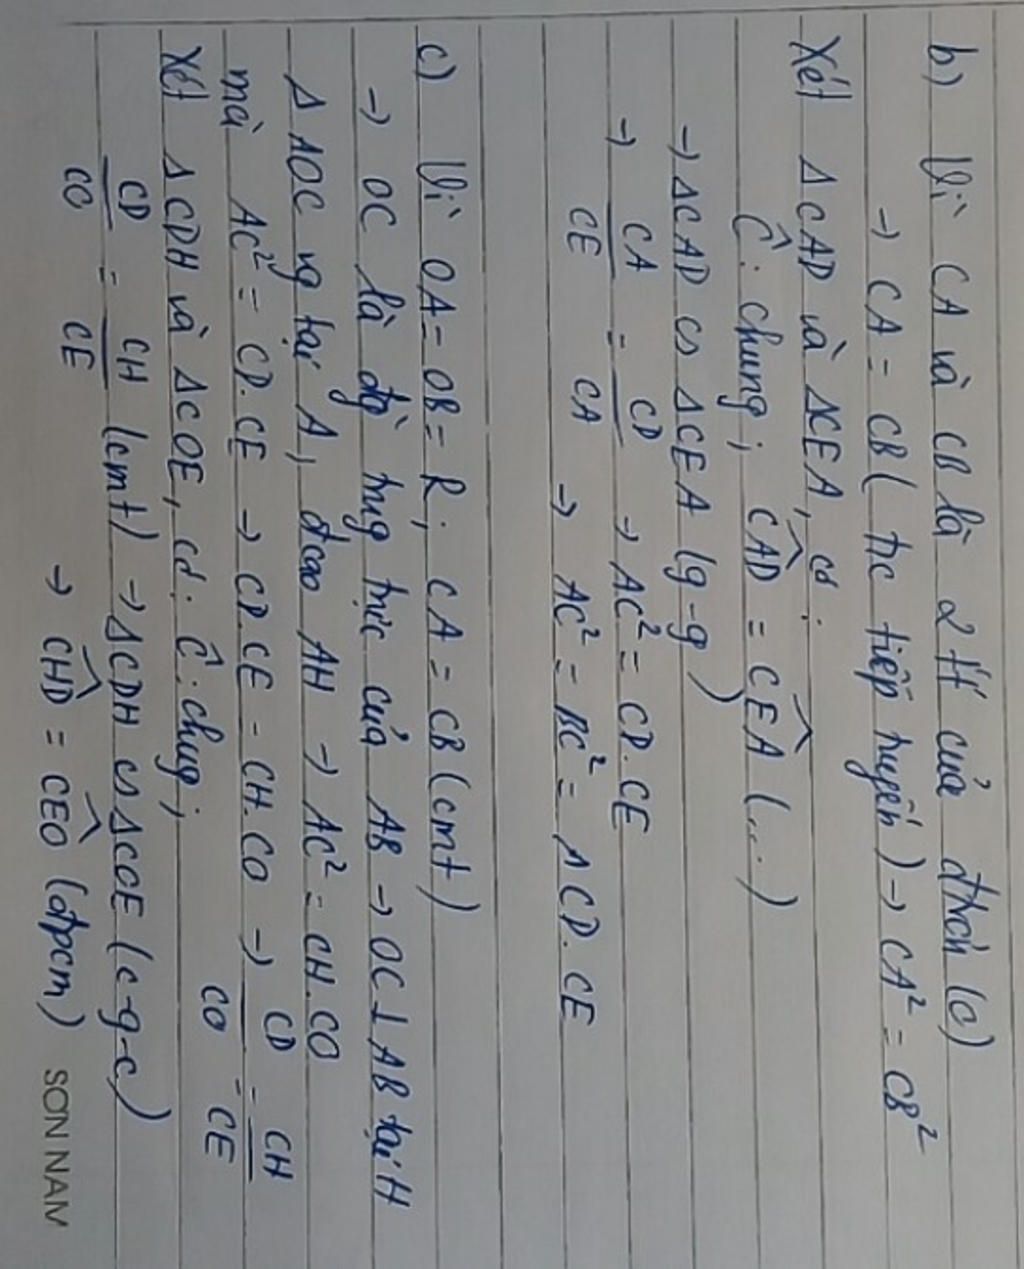 b) Vì CA và CB là 2 tt của đtròn (O)
→ CA = CB (t/c tiếp tuyến) → CA² = CB²
Xét ΔCAD và ΔCEA, có:
Ĉ: chung; CAD̂ = CEÂ (...)
→ ΔCAD ∽ ΔCEA (g-g)
→ CA/CE = CD/CA → AC² = CD.CE
→ AC² = BC² = CD.CE
c) Vì OA = OB = R; CA = CB (cmt)
→ OC là đg trug trực của AB → OC ⊥ AB tại H
Δ AOC vg tại A, đcao AH → AC² = CH.CO
mà AC² = CD.CE → CD.CE = CH.CO → CD/CO = CH/CE
Xét ΔCDH và ΔCOE, có: Ĉ: chug;
CD/CO = CH/CE (cmt) → ΔCDH ∽ ΔCOE (c-g-c)
→ CHD̂ = CEÔ (đpcm)
SƠN NAM